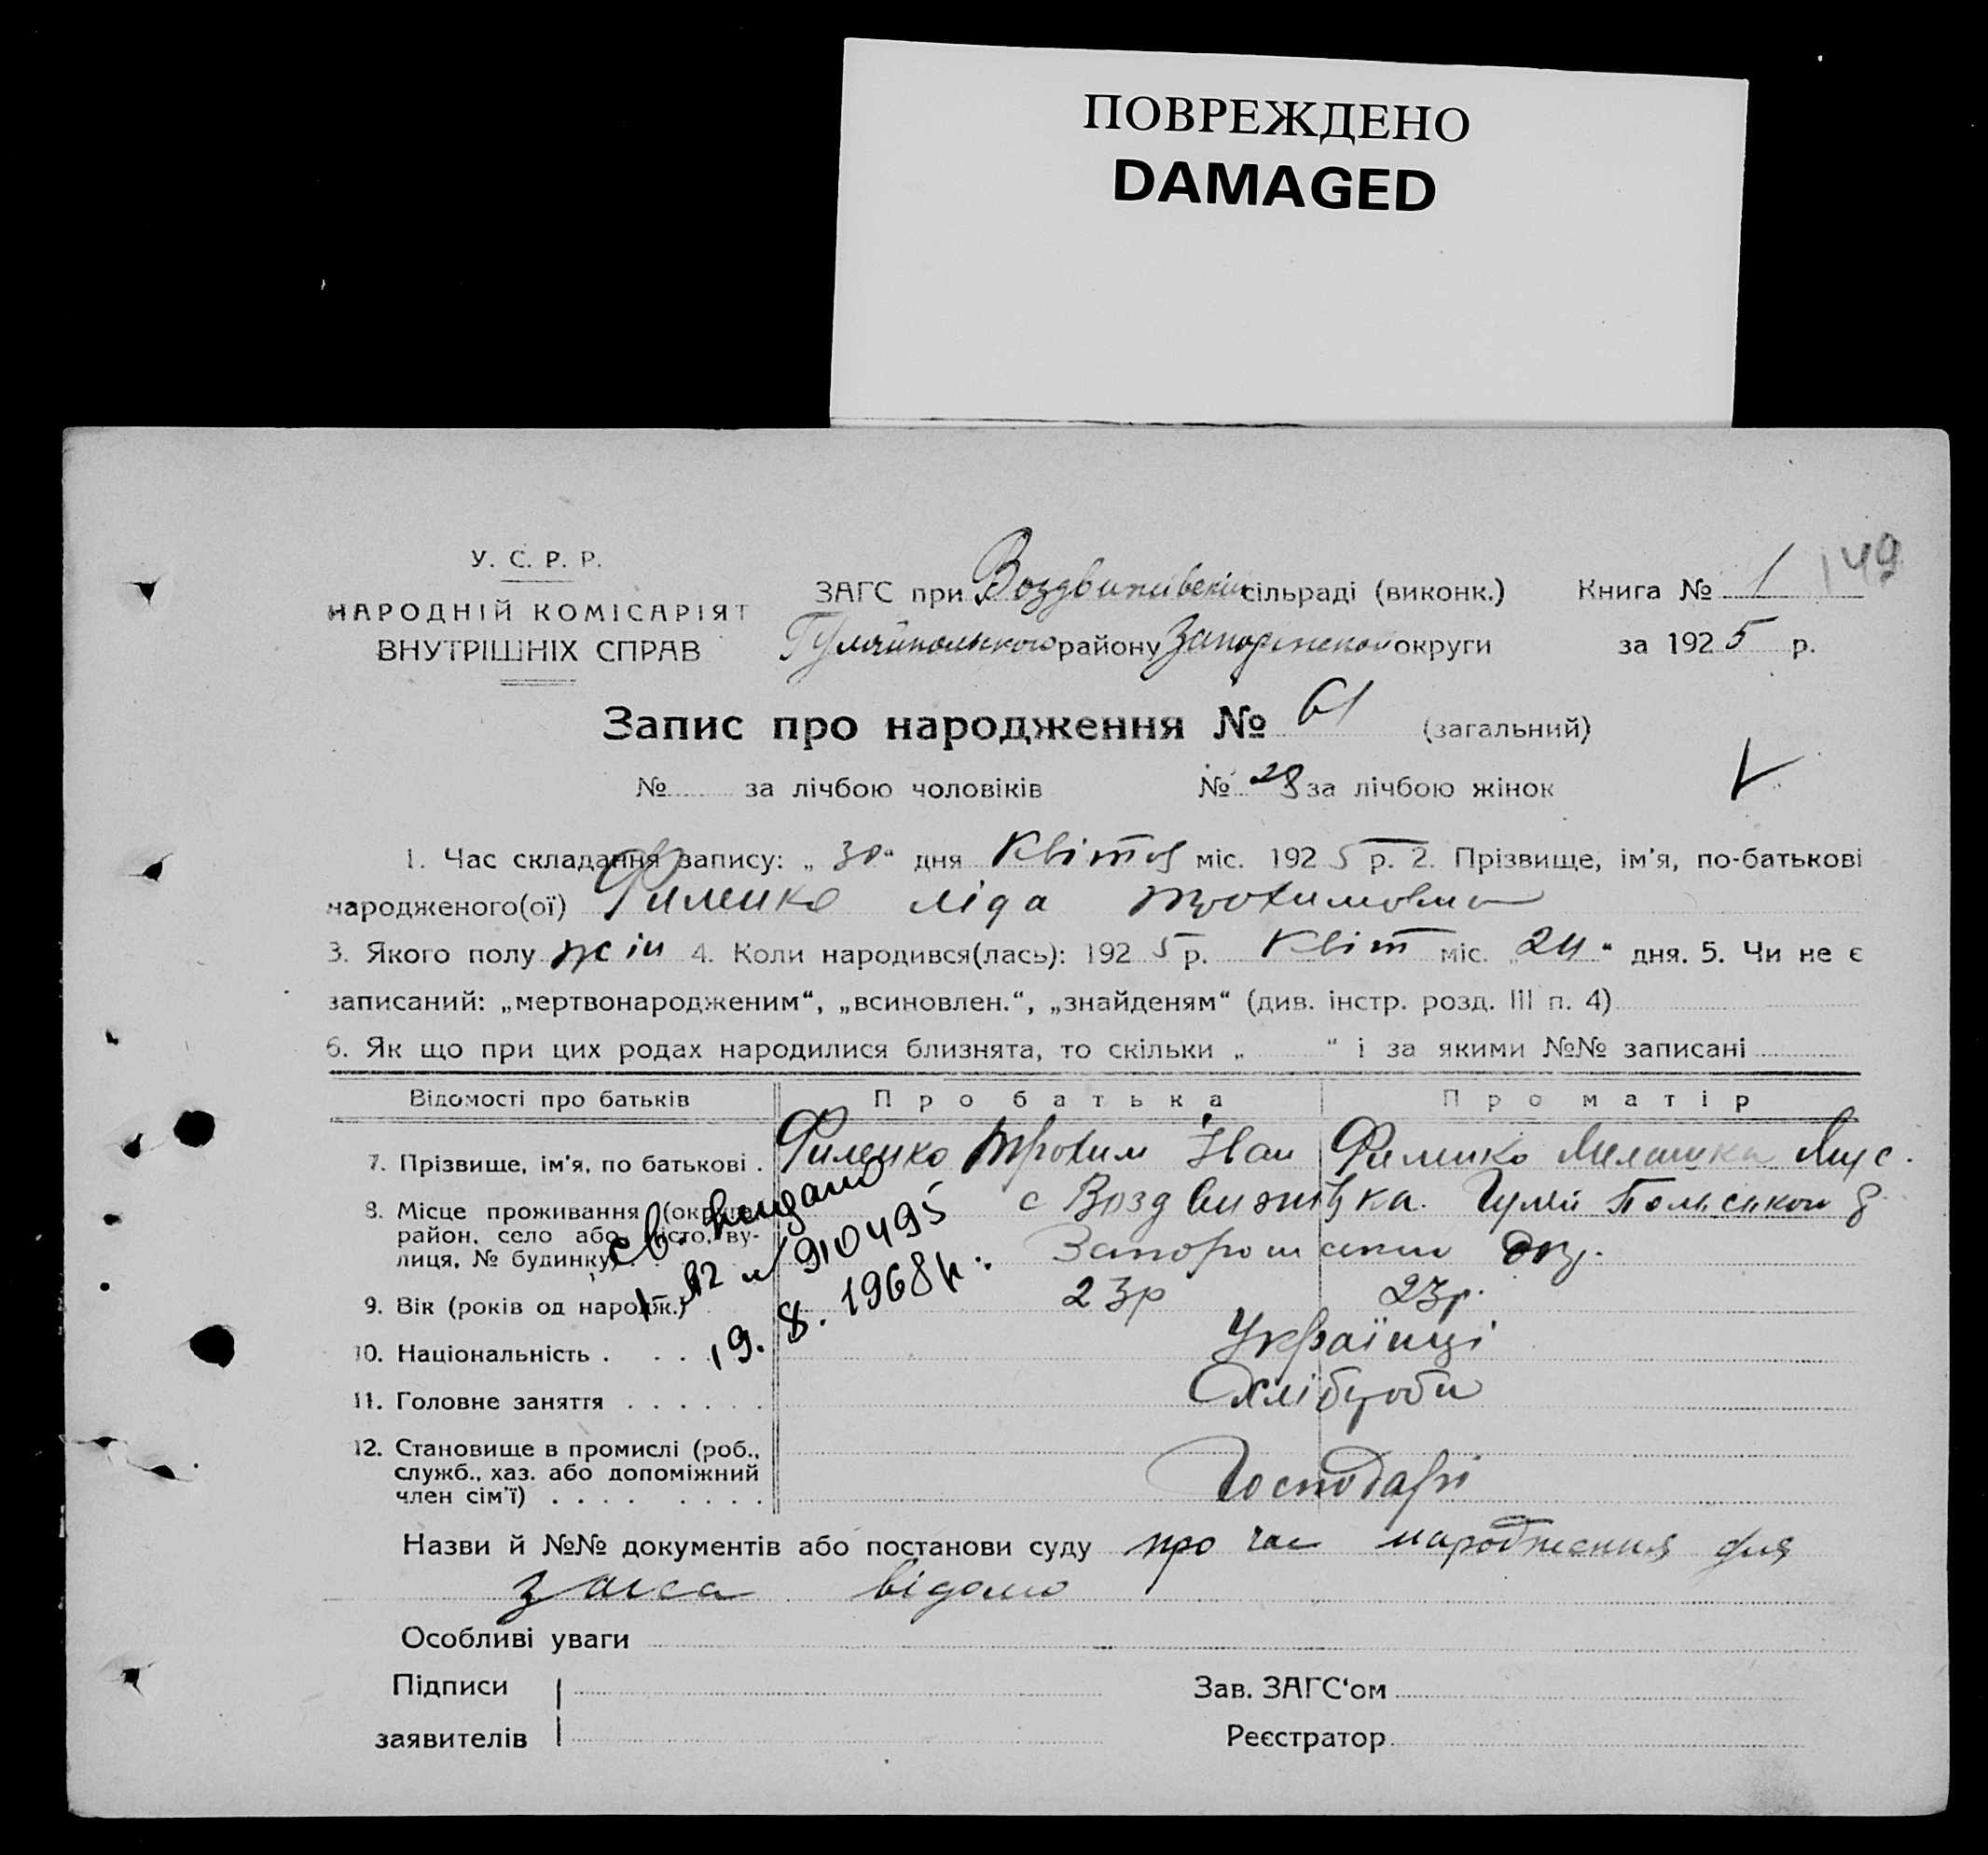 ПОВРЕЖДЕНО
DAMAGED
149
У. С. Р. Р.
НАРОДНІЙ КОМІСАРІЯТ
ВНУТРІШНІХ СПРАВ
ЗАГС при Воздвижівській сільраді (виконк.) Книга № 1
Гуляйпольського району Запоріжської округи за 1925 р.
Запис про народження № 61 (загальний)
№ за лічбою чоловіків № 28 за лічбою жінок
1. Час складання запису: „30“ дня Квітня міс. 1925 р. 2. Прізвище, ім'я, по-батькові
народженого(ої) Филенко Ліда Трохимовна
3. Якого полу жін 4. Коли народився(лась): 1925 р. Квіт міс. „24“ дня. 5. Чи не є
записаний: „мертвонародженим“, „всиновлен.“, „знайденям“ (див. інстр. розд. III п. 4)
6. Як що при цих родах народилися близнята, то скільки „ “ і за якими №№ записані
Відомості про батьків Про батька Про матір
7. Прізвище, ім'я, по батькові . Филенко Трохим Іван Филенко Милашка
8. Місце проживання (округа, район, село або місто, вулиця, № будинку) с Воздвижівка. Гуляй Польської
Запорожської окр.
св. видано
910495
19. 8. 1968р.
9. Вік (років од народж.) 23р 23р.
10. Національність . . . . Українці
11. Головне заняття . . . . . . Хлібороби
12. Становище в промислі (роб.,
служб., хаз. або допоміжний
член сім'ї) . . . . . . . . Господарі
Назви й №№ документів або постанови суду про час народження для
загса відомо
Особливі уваги
Підписи Зав. ЗАГС'ом
заявителів Реєстратор